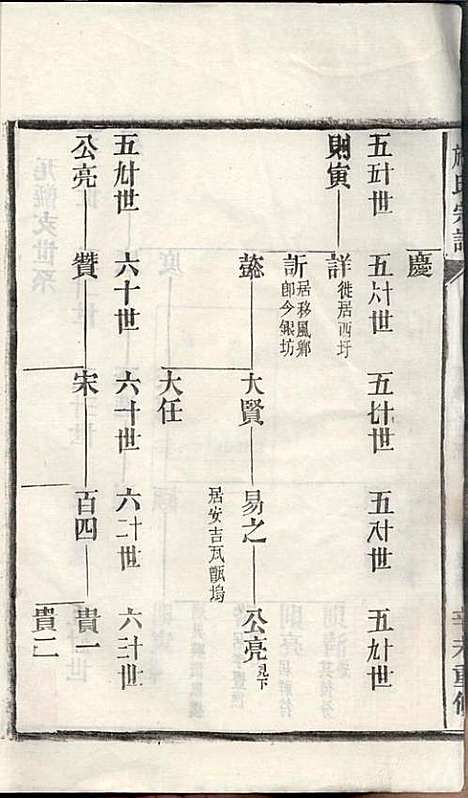 氏宗譜
重修
慶
五五十世　五六十世　五七十世　五八十世　五九十世
則寅　詳　徙居西圩
訢　居移風鄉
即今銀坊
懿　大賢　易之　公亮　見下
居安吉瓦甑塢
大任
五九十世　六十世　六一十世　六二十世　六三十世
公亮　贊　宋　百四　貴一
貴二